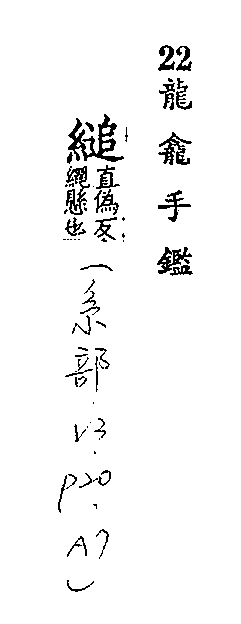 22龍龕手鑑
縋直偽反
繩懸也
(糸部.V3.P20.A7)